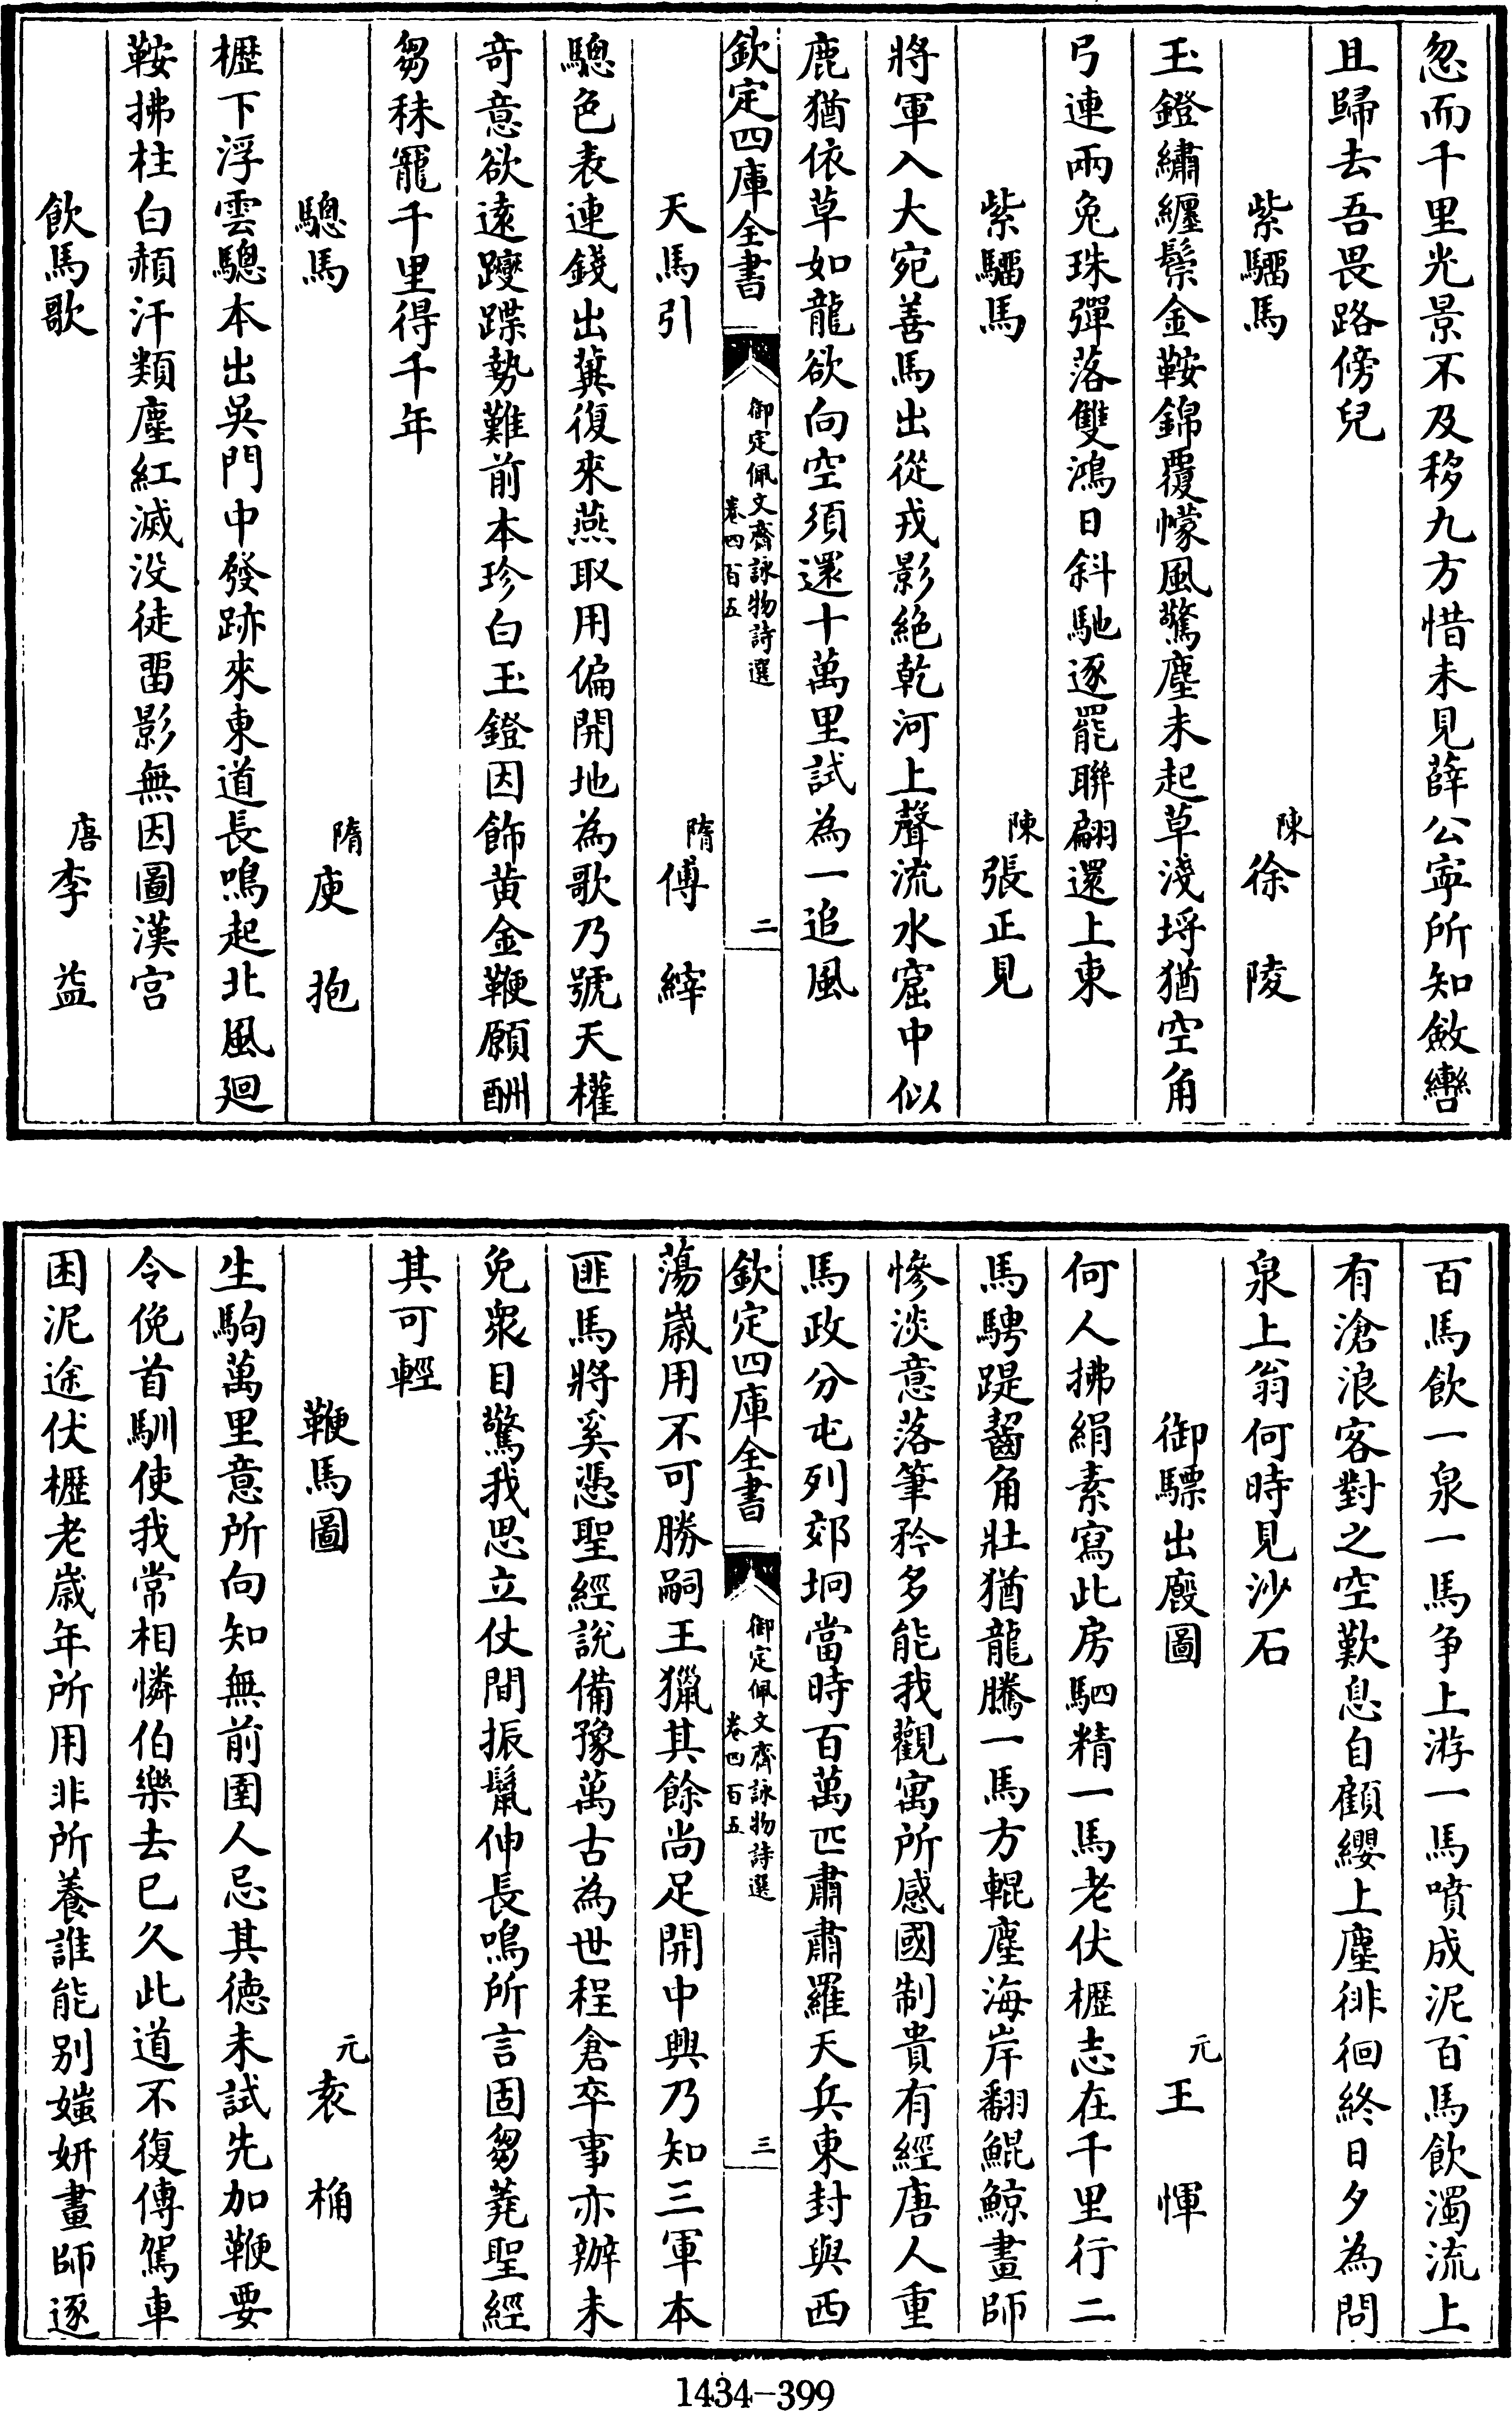 忽而千里光景不及移九方惜未見薛公寧所知斂轡
且歸去吾畏路傍兒
紫騮馬 陳徐陵
玉鐙繡纏鬃金鞍錦覆幪風驚塵未起草淺埒猶空角
弓連兩兔珠彈落雙鴻日斜馳逐罷聯翩還上東
紫騮馬 陳張正見
將軍入大宛善馬出從戎影絶乾河上聲流水窟中似
鹿猶依草如龍欲向空須還十萬里試為一追風
欽定四庫全書 御定佩文齋詠物詩選 卷四百五 二
天馬引 隋傅縡
驄色表連錢出冀復來燕取用偏開地為歌乃號天權
竒意欲遠躞蹀勢難前本珍白玉鐙因飾黄金鞭願酬
芻秣寵千里得千年
驄馬 隋庾抱
櫪下浮雲驄本出吳門中發跡來東道長鳴起北風廻
鞍拂柱白赬汗類塵紅滅没徒畱影無因圖漢宫
飲馬歌 唐李益
百馬飲一泉一馬争上游一馬噴成泥百馬飲濁流上
有滄浪客對之空歎息自顧纓上塵徘徊終日夕為問
泉上翁何時見沙石
御驃出廐圖 元王惲
何人拂絹素寫此房駟精一馬老伏櫪志在千里行二
馬騁踶齧角壯猶龍騰一馬方輥塵海岸翻鯤鯨畫師
慘淡意落筆矜多能我觀寓所感國制貴有經唐人重
馬政分屯列郊坰當時百萬匹肅肅羅天兵東封與西
欽定四庫全書 御定佩文齋詠物詩選 卷四百五 三
蕩嵗用不可勝嗣王獵其餘尚足開中興乃知三軍本
匪馬將奚憑聖經說備豫萬古為世程倉卒事亦辦未
免衆目驚我思立仗間振鬛伸長鳴所言固芻蕘聖經
其可輕
鞭馬圖 元袁桷
生駒萬里意所向知無前圉人忌其德未試先加鞭要
令俛首馴使我常相憐伯樂去已久此道不復傳駕車
困泥途伏櫪老嵗年所用非所養誰能别媸妍畫師逐
1434-399